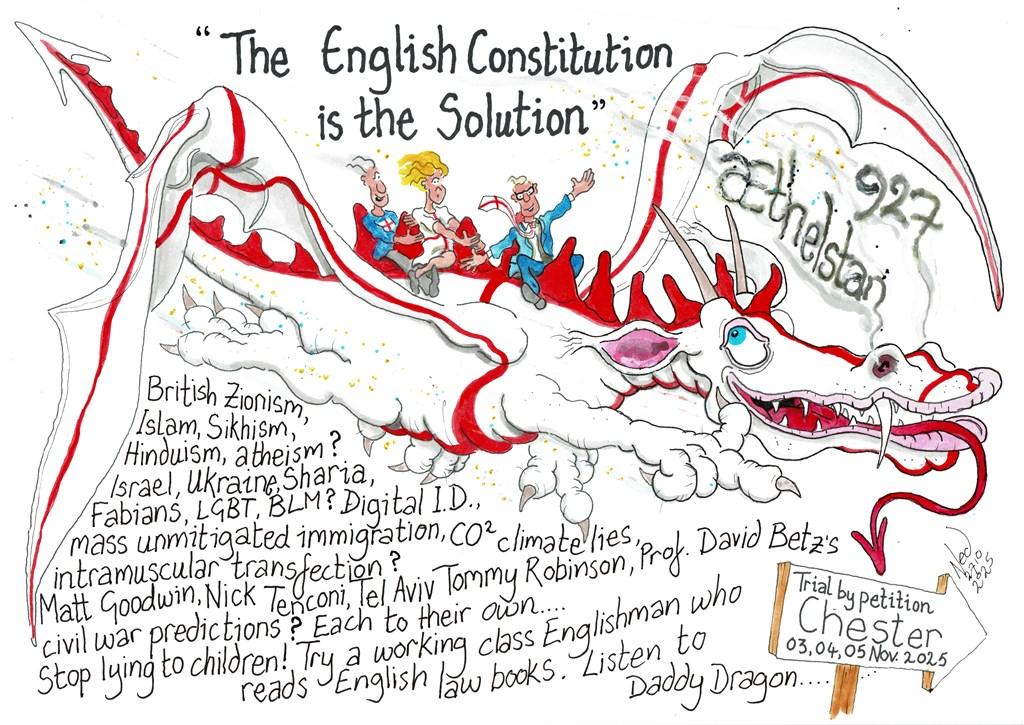 “The English Constitution
is the Solution”
æthelstan
927
British Zionism,
Islam, Sikhism,
Hinduism, atheism?
Israel, Ukraine, Sharia,
Fabians, LGBT, BLM? Digital I.D.,
mass unmitigated immigration, CO² climate lies,
intramuscular transfection?
Matt Goodwin, Nick Tenconi, Tel Aviv Tommy Robinson, Prof. David Betz's
civil war predictions? Each to their own....
Stop lying to children! Try a working class Englishman who
reads English law books. Listen to
Daddy Dragon....
Trial by petition
Chester
03, 04, 05 Nov. 2025
2025